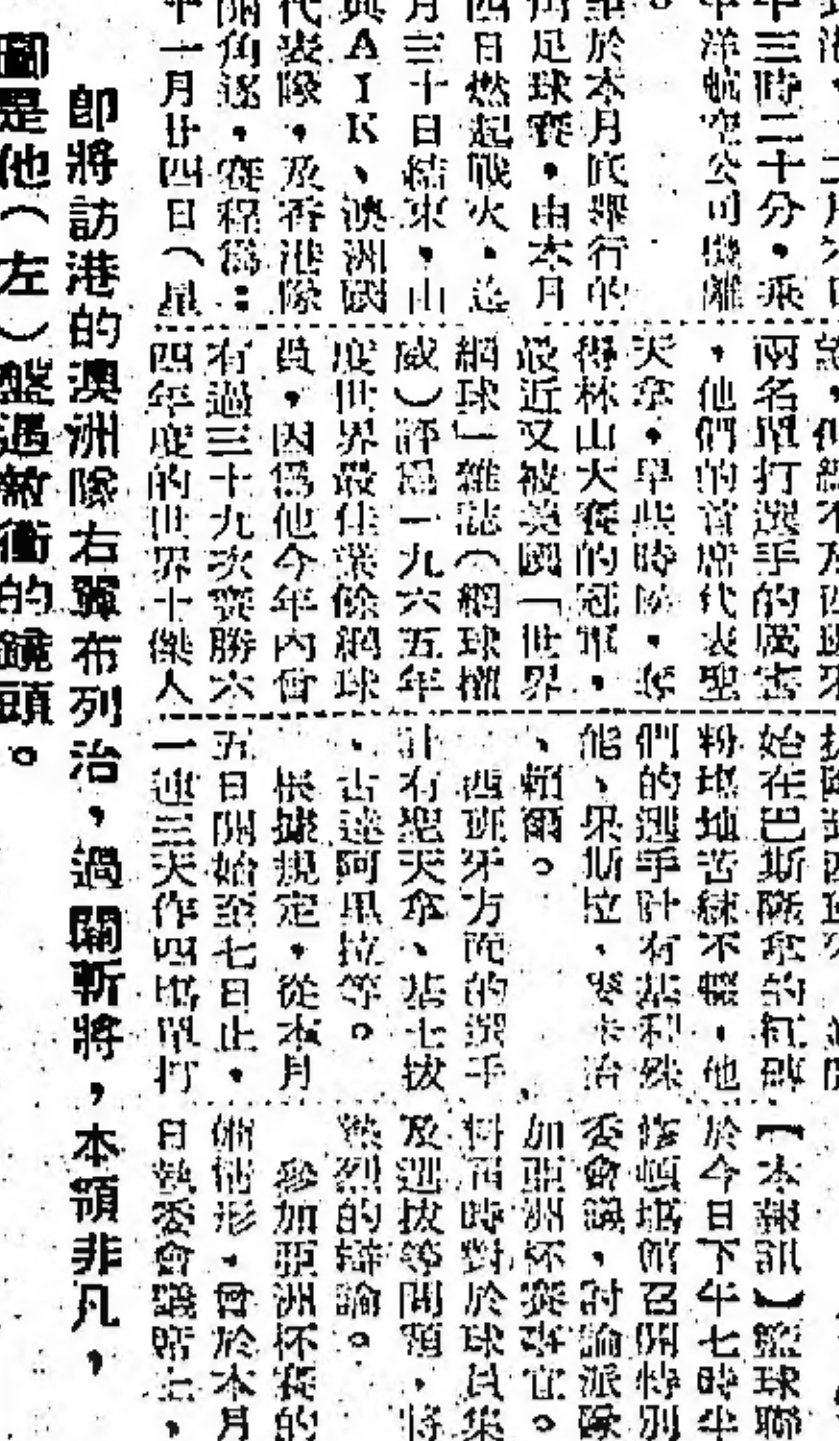 年三時二十分，乘
洋航空公司機離
於本月底舉行的
足球賽，由本月
四日燃起戰火，迄
月三十日結束，由
與AIK、澳洲國
代表隊，及香港隊
角逐，賽程為：
一月廿四日（星
兩名單打選手的厲害
，他們的首席代表聖
天拿，早些時候，奪
得林山大賽的冠軍，
最近又被美國「世界
網球」雜誌（網球權
威）評為一九六五年
度世界最佳業餘網球
員，因為他今年內曾
有過三十九次賽勝六
四年度的世界十傑人
始在巴斯隊拿的紅
粉場地苦練不輟，他
們的選手計有基利殊
能、果斯拉、麥卡治
、賴爾。
西班牙方面的選手
計有聖天拿、基士拔
、古達阿里拉等。
根據規定，從本月
五日開始至七日止，
一連三天作四場單打
【本報訊】籃球聯
於今日下午七時半
修頓場館召開特別
委會議，討論派隊
加亞洲杯賽事宜。
料屆時對於球員集
及選拔等問題，將
激烈的辯論。
參加亞洲杯賽的
情形，曾於本月
日執委會議席上，
即將訪港的澳洲隊右翼布列治，過關斬將，本領非凡，
圖是他（左）盤過敵衛的鏡頭。